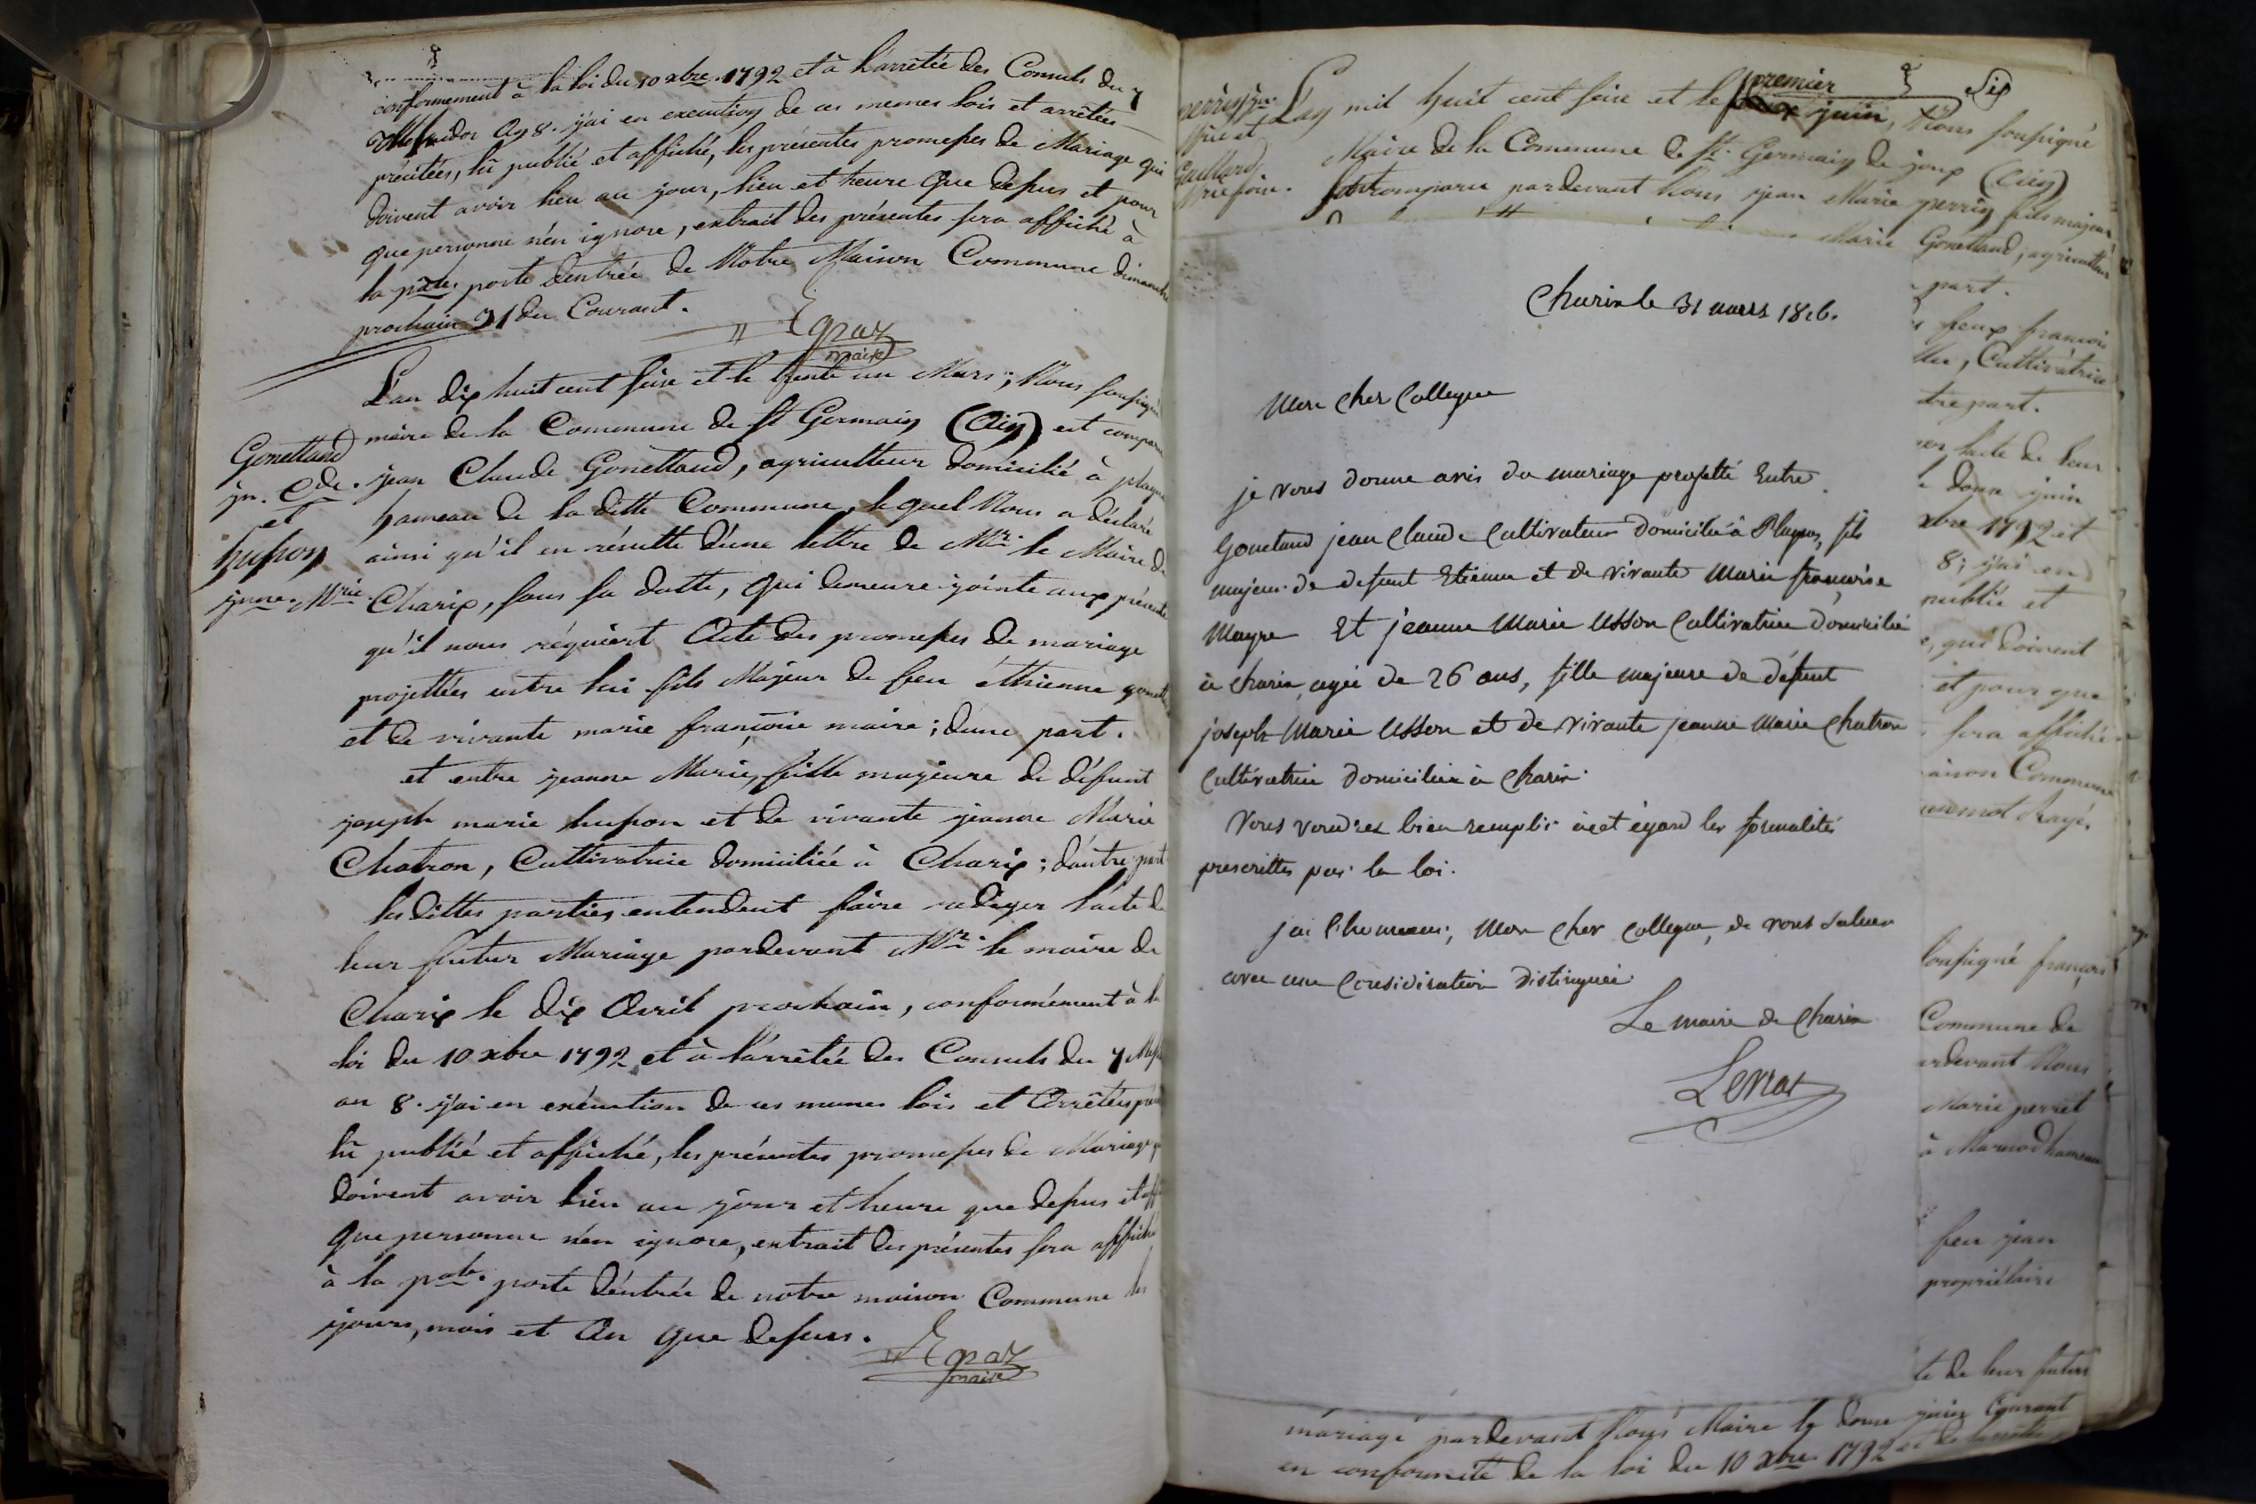 conformement à la loi du 10 xbre. 1792 et à l'arrêtée des Consuls du 7
An 8. j'ai en execution de ces memes lois et arrêtées
précitées, lû publié et affiché, les présentes promesses de Mariage qui
doivent avoir lieu au jour, lieu et heure que dessus et pour
que personne n'en ignore, extrait des présentes sera affiché à
la pale. porte d'entrée de Notre Maison Commune dimanche
prochain 31 du Courant.
Egraz
maire
L'an dix huit cent seize et le trente un Mars; Nous soussigné
maire de la Commune de St Germain (Ain) est comparu
jean Claude Gonettand, agriculteur domicilié à plagne
hameau de la ditte Commune, lequel Nous a déclaré
ainsi qu'il en résulte d'une lettre de Mr. le Maire de
Charix, sous sa datte, qui demeure jointe aux présentes
qu'il nous réquiert Acte des promesses de mariage
projettées entre lui fils Majeur de feu éthienne
et de vivante marie françoise maire; d'une part.
et entre jeanne Marie, fille majeure de défunt
joseph marie husson et de vivante jeanne Marie
Chatron, Cultivatrice domiciliée à Charix; d'autre part
lesdittes parties entendent faire rediger l'acte de
leur futur Mariage pardevant Mr. le maire de
Charix le dix Avril prochain, conformément à la
loi du 10 xbre 1792 et à l'arrêtée des Consuls du 7
an 8. j'ai en exécution de ces memes lois et Arrêtées
lû publié et affiché, les présentes promesses de Mariage
doivent avoir lieu au jour et heure que dessus et
que personne n'en ignore, extrait des présentes sera affiché
à la pale. porte d'entrée de notre maison Commune les
jours, mois et An que dessus.
Egraz
maire
Gonettand
jn. Cde.
et
husson
jnne. Mrie.
perrin jn.
Mrie et
Goullard
Mrie foise.
Six
premier
L'an mil huit cent seize et le juin, Nous soussigné
Maire de la Commune de St. Germain de joux (Ain)
comparu pardevant Nous jean Marie perrin fils majeur
Marie Gonettand, agriculteur
part.
feux françois
Cultivatrice
part.
l'acte de leur
douze juin
xbre 1792 et
8; j'ai en
publié et
qui doivent
et pour que
sera affiché
maison Commune
mot Rayé.
Charix le 31 mars 1816.
Mon cher Collegue
je vous donne avis du mariage projetté Entre
Gonetand jean Claude Cultivateur domicilié à Plagnes, fils
majeur de defunt Etienne et de vivante Marie françoise
Mayre Et jeanne Marie Usson Cultivatrice domicilié
à Charix, agée de 26 ans, fille majeure de défunt
joseph Marie Usson et de vivante jeanne Marie Chatron
Cultivatrice domiciliée à Charix.
Vous voudrez bien remplir à cet égard les formalités
prescrittes par la loi.
j'ai l'honneur, Mon cher Collegue, de vous saluer
avec une Consideration distinguée
Le maire de Charix
soussigné françois
Commune de
pardevant Nous
Marie perret
à Marnod hameau
feu jean
propriétaire
de leur futur
mariage pardevant Nous Maire le douze juin Courant
en conformité de la loi du 10 xbre. 1792 et de l'arrêté